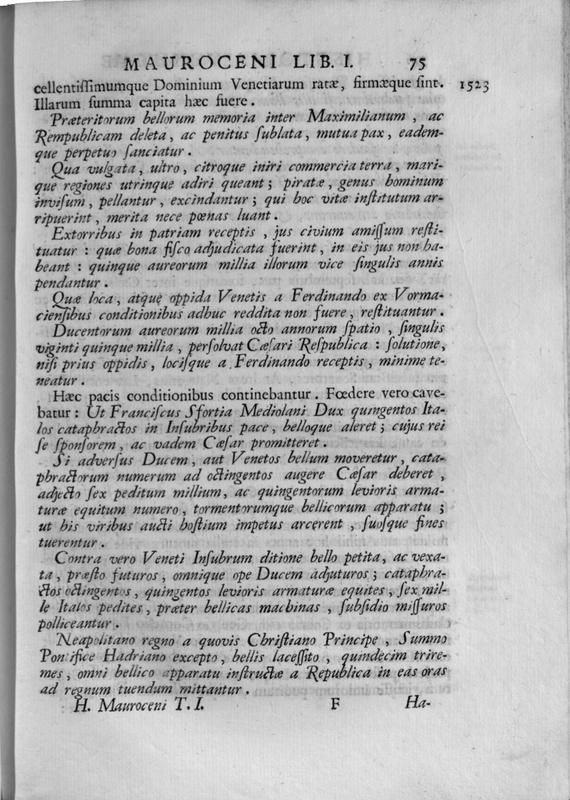 MAUROCENI LIB. I. 75
cellentissimumque Dominium Venetiarum ratæ, firmæque sint. 1523
Illarum summa capita hæc fuere.
Præteritorum bellorum memoria inter Maximilianum, ac
Rempublicam deleta, ac penitus sublata, mutua pax, eadem-
que perpetuo sanciatur.
Qua vulgata, ultro, citroque iniri commercia terra, mari-
que regiones utrinque adiri queant; piratæ, genus hominum
invisum, pellantur, excindantur; qui hoc vitæ institutum ar-
ripuerint, merita nece pœnas luant.
Extorribus in patriam receptis, jus civium amissum resti-
tuatur: quæ bona fisco adjudicata fuerint, in eis jus non ha-
beant: quinque aureorum millia illorum vice singulis annis
pendantur.
Quæ loca, atque oppida Venetis a Ferdinando ex Vorma-
ciensibus conditionibus adhuc reddita non fuere, restituantur.
Ducentorum aureorum millia octo annorum spatio, singulis
viginti quinque millia, persolvat Cæsari Respublica: solutione,
nisi prius oppidis, locisque a Ferdinando receptis, minime te-
neatur.
Hæc pacis conditionibus continebantur. Fœdere vero cave-
batur: Ut Franciscus Sfortia Mediolani Dux quingentos Ita-
los cataphractos in Insubribus pace, belloque aleret; cujus rei
se sponsorem, ac vadem Cæsar promitteret.
Si adversus Ducem, aut Venetos bellum moveretur, cata-
phractorum numerum ad octingentos augere Cæsar deberet,
adjecto sex peditum millium, ac quingentorum levioris arma-
turæ equitum numero, tormentorumque bellicorum apparatu;
ut his viribus aucti hostium impetus arcerent, suosque fines
tuerentur.
Contra vero Veneti Insubrum ditione bello petita, ac vexa-
ta, præsto futuros, omnique ope Ducem adjuturos; cataphra-
ctos octingentos, quingentos levioris armaturæ equites, sex mil-
le Italos pedites, præter bellicas machinas, subsidio missuros
polliceantur.
Neapolitano regno a quovis Christiano Principe, Summo
Pontifice Hadriano excepto, bellis lacessito, quindecim trire-
mes, omni bellico apparatu instructæ a Republica in eas oras
ad regnum tuendum mittantur.
H. Mauroceni T. I. F Ha-